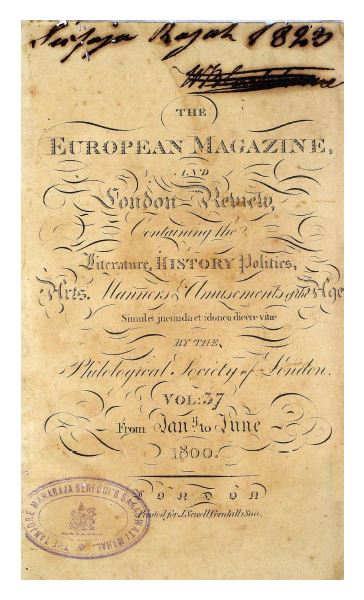 Serfojee Rajah 1823
THE
EUROPEAN MAGAZINE,
AND
London Review,
Containing the
Literature, HISTORY Politics,
Arts, Manners & Amusements of the Age
Simul et jucunda et idonea dicere vitæ
BY THE
Philological Society of London.
VOL: 37
From Jany. to June
1800.
LONDON
Printed for J. Sewell Cornhill 1800.
THE TANJORE MAHARAJA SERFOJI'S SARASWATI MAHAL